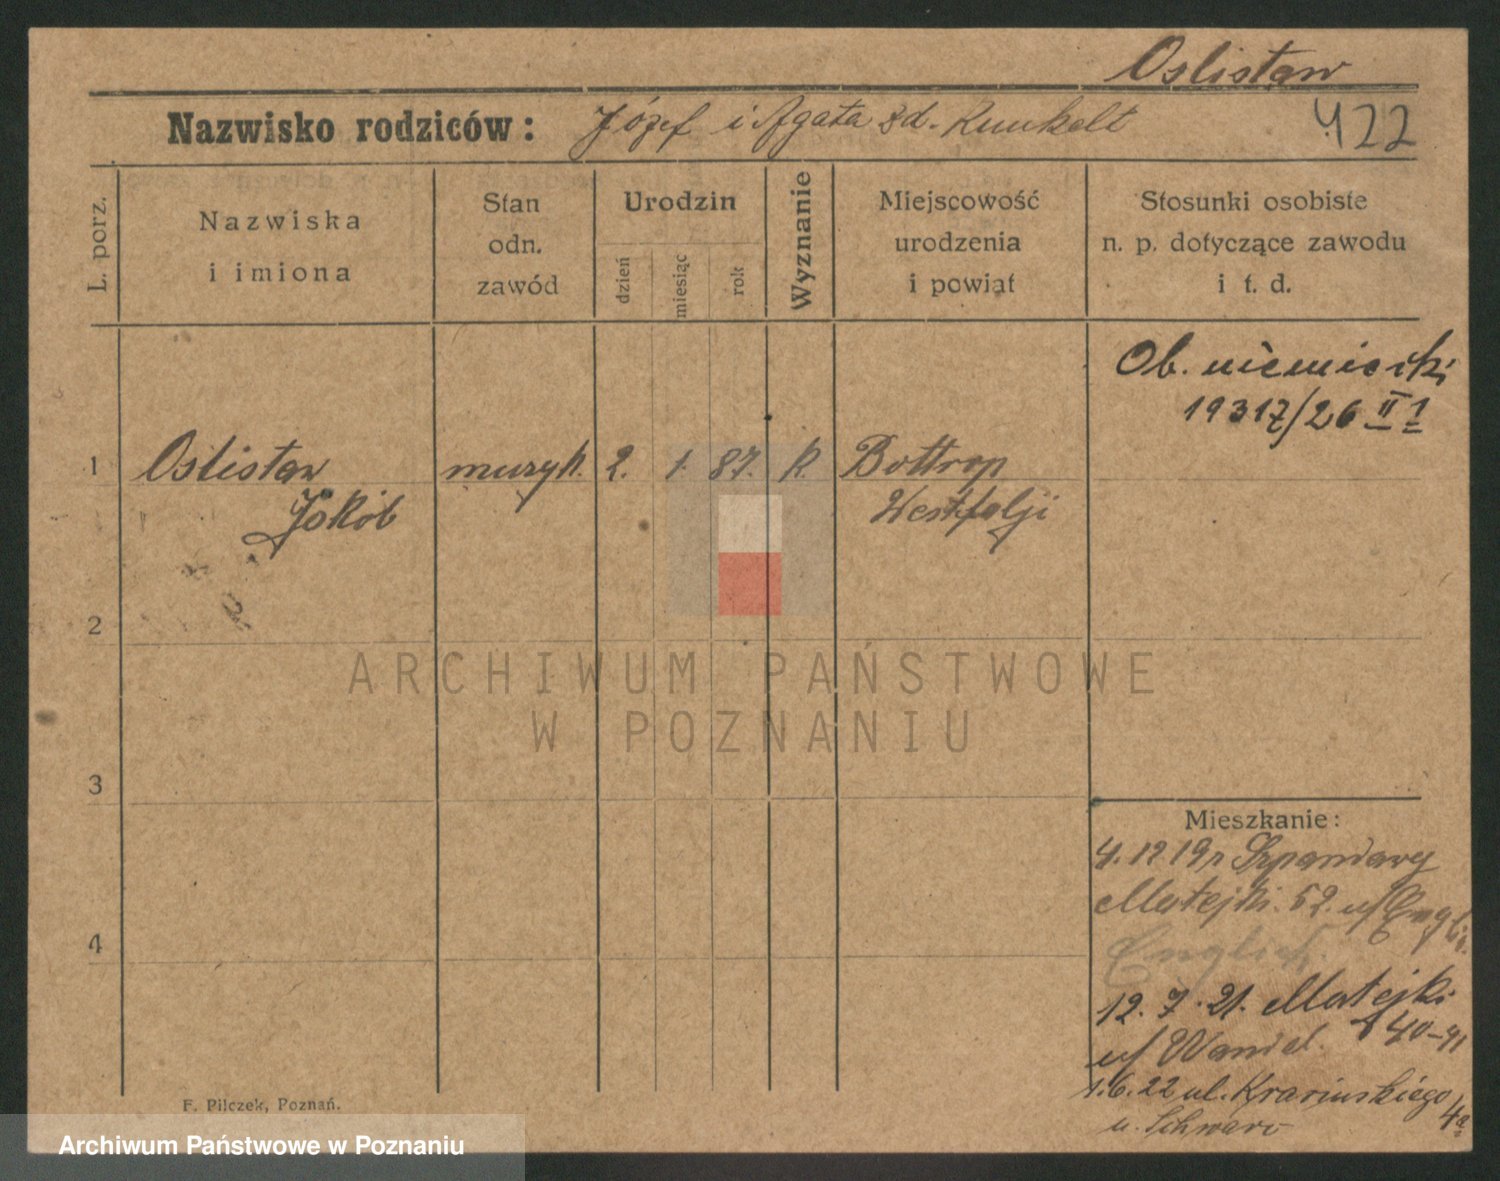 Oslistaw
Nazwisko rodziców: Józef i Agata zd. Kunkelt
422
L. porz.
Nazwiska
i imiona
Stan
odn.
zawód
Urodzin
dzień
miesiąc
rok
Wyznanie
Miejscowość
urodzenia
i powiat
Stosunki osobiste
n. p. dotyczące zawodu
i t. d.
Ob. niemiecki
19317/26 II 1
1 Oslistaw muzyk. 2. 1. 87. k. Bottrop
Jakób Westfalji
2
3
4
Mieszkanie:
4. 12 19 r
Matejki. 52. u/
Englich.
12. 7. 21. Matejki
40-41
u/ Wandel.
1.6.22 ul. Krasińskiego
4a
u. Schwarc
F. Pilczek, Poznań.
ARCHIWUM PAŃSTWOWE
W POZNANIU
Archiwum Państwowe w Poznaniu